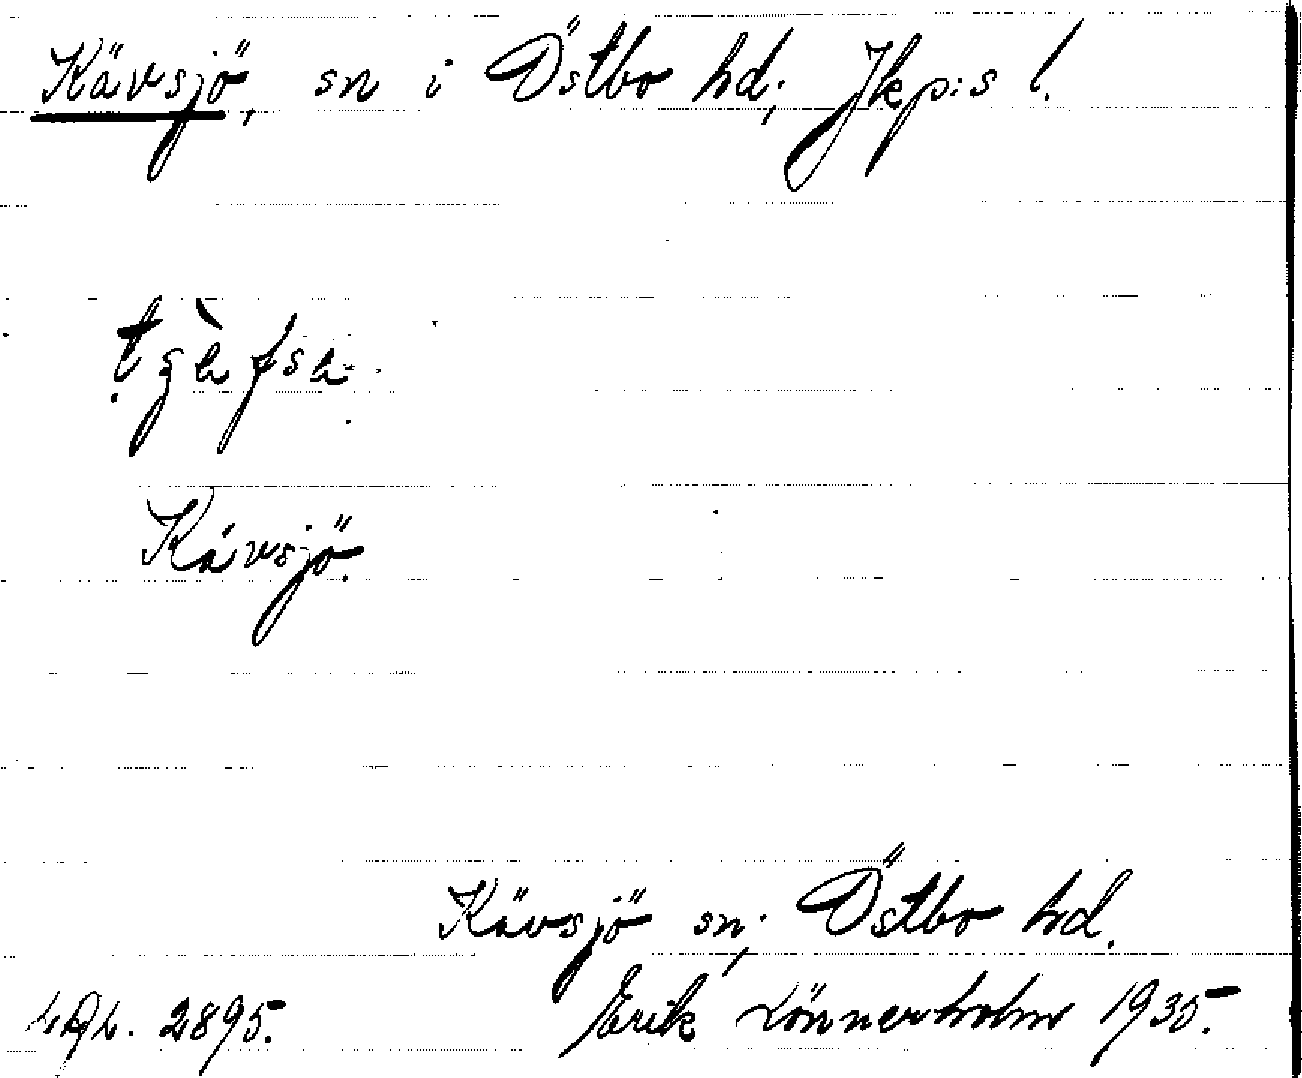 Kävsjö, sn i Östbo hd; Jkp:s l.
Kävsjö.
Kävsjö sn; Östbo hd.
2895. Erik Lönnerholm 1935.